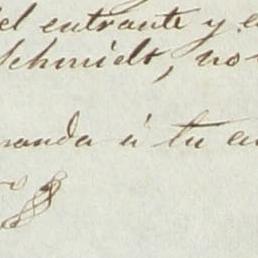 del entrante y e
Schmidt, no
manda à tu a